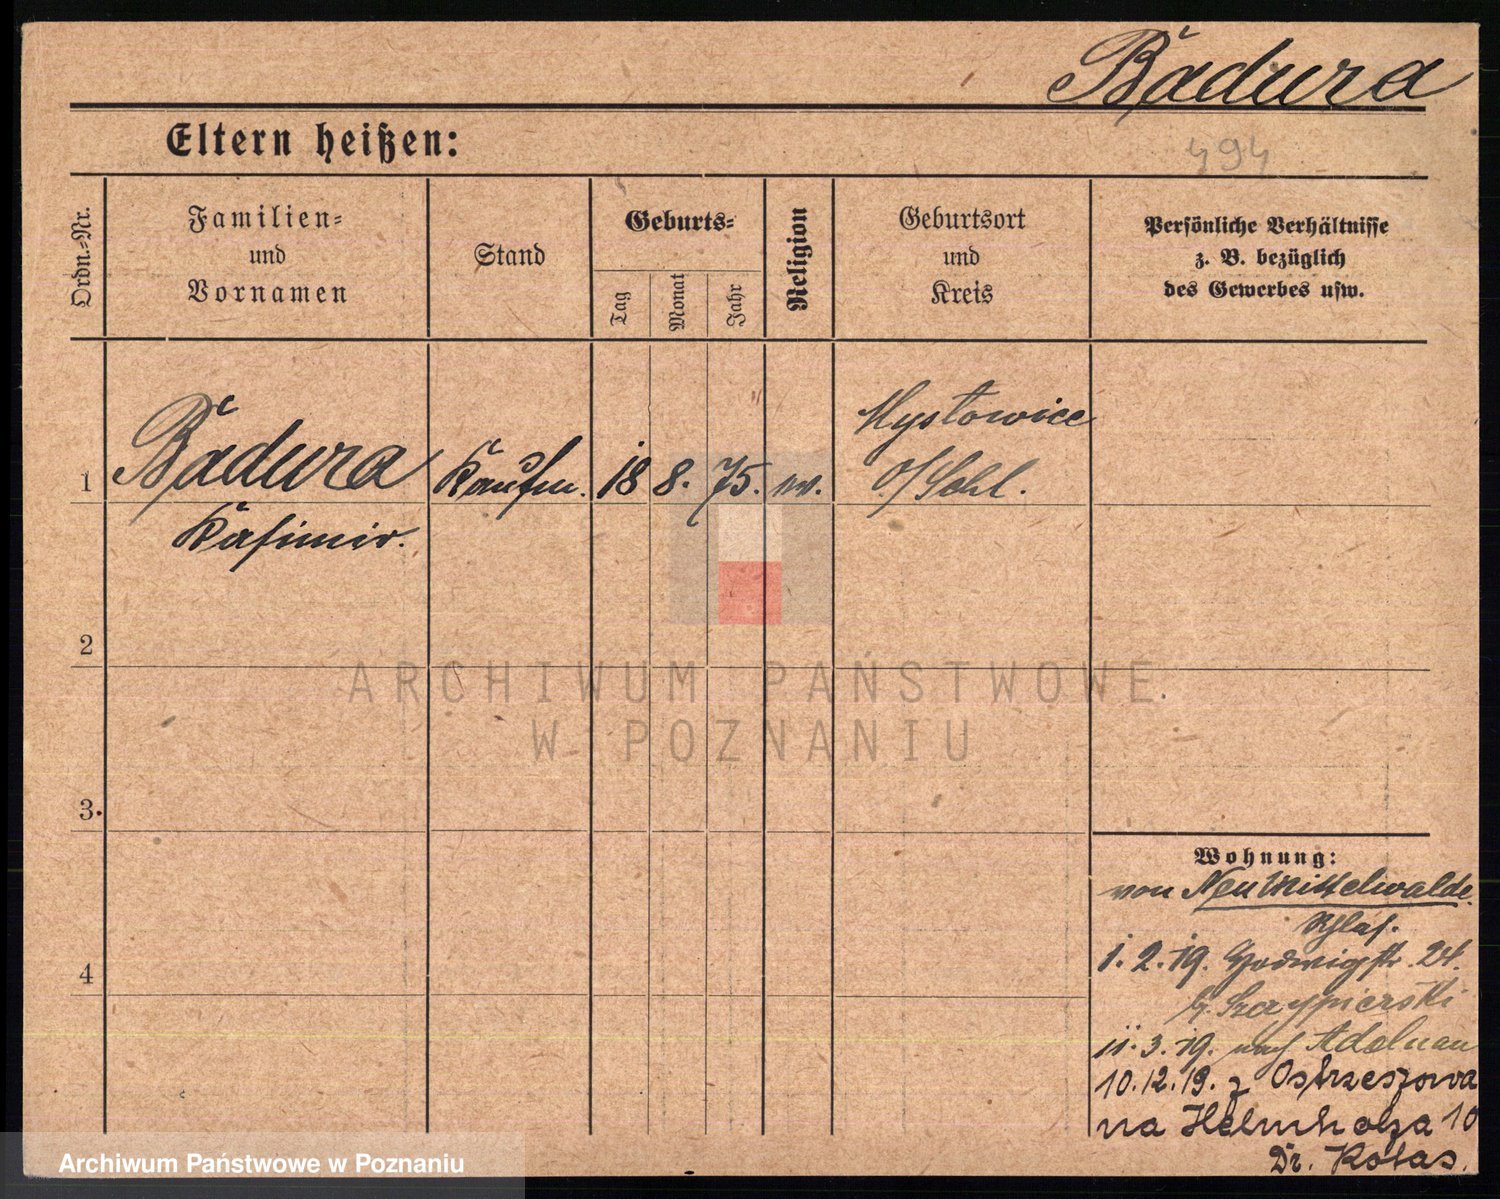 Badura
Eltern heißen:
494
Ordn.=Nr.
Familien=
und
Vornamen
Stand
Geburts=
Tag
Monat
Jahr
Religion
Geburtsort
und
Kreis
Persönliche Verhältnisse
z. B. bezüglich
des Gewerbes usw.
1
Badura
Kasimir.
Kaufm.
18
8.
75.
Mystowice
O/Schl.
2
3.
4
Wohnung:
von Neu Mittelwalde
Schles.
1.2.19. Hedwigstr. 24.
b. Szczypierski
11.3.19. nach Adelnau
10.12.19. z Ostrzeszowa
na Helmholza 10
Dr. Kolas.
ARCHIWUM PAŃSTWOWE
W POZNANIU
Archiwum Państwowe w Poznaniu